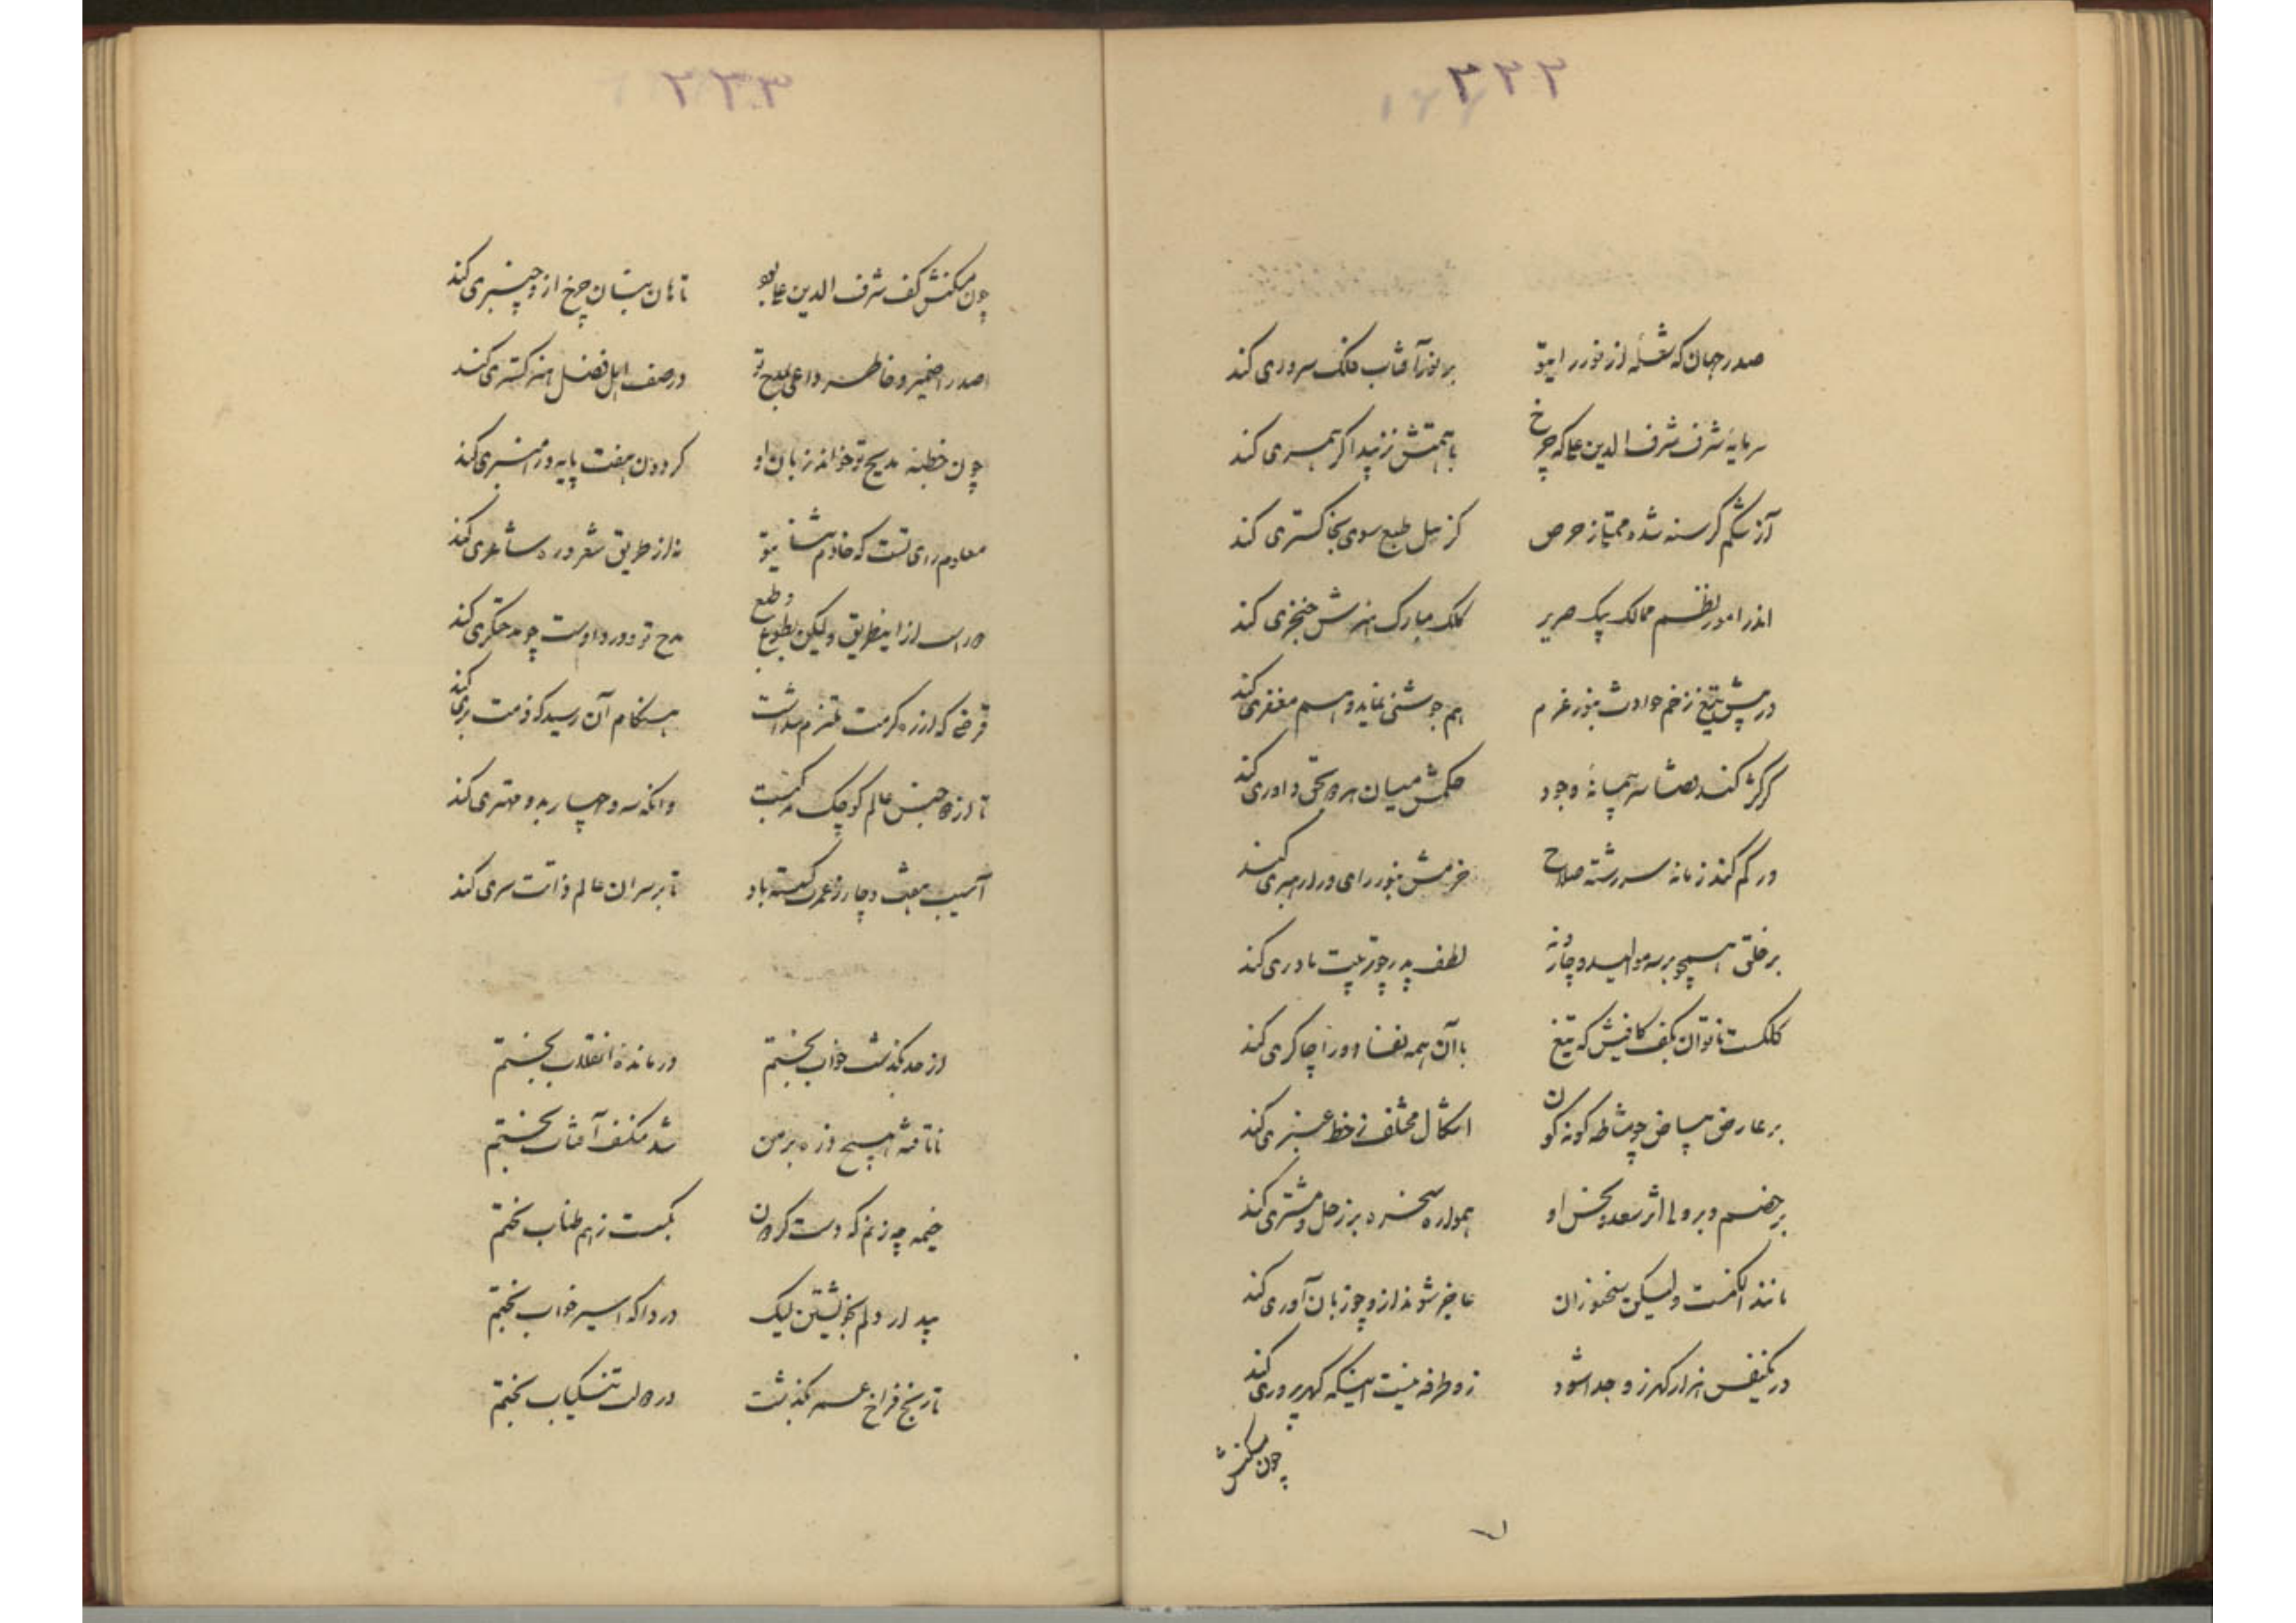 ۲۲۲
صدر جهان که شعلهٔ از نور رای تو بر نور آفتاب فلک سروری کند
سرمایهٔ شرف شرف الدین علی که چرخ با همتش نزیبد اگر همسری کند
آز شکم گرسنه شده ممتلز حرص کز میل طبع سوی سخا گستری کند
اندر امور نظم ممالک پیک صریر کلک مبارک هنرش خنجری کند
در پیش تیغ زخم حوادث بنور عزم هم جوشنی نماید و هم مغفری کند
گر کژ کند سر پیمانهٔ وجود حکمش میان هر دو بحق داوری کند
ور گم کند زمانه سر رشتهٔ صلاح حزمش بنور رای ورا رهبری کند
بر خلق همچو بر سه موالید و چار نه لطف پدر چو تربیت مادری کند
کلکست ناتوان بکف کافیش که تیغ با آن همه نفاذ ورا چاکری کند
بر عارض بیاض چو مشاطه گونه گون اشکال مختلف ز خط عنبری کند
بر خصم و بر ولی اثر سعد و نحس او همواره سخره بر زحل و مشتری کند
مانند الکنست ولیکن سخنوران عاجز شوند ازو چو زبان آوری کند
در یکنفس هزار گهر زو جدا شود زو طرفه نیست اینکه گهر پروری کند
چون مسکنش
۲۲۳
چون مسکنش کف شرف الدین علی بود تا هان بسان چرخ ازو چنبری کند
صدرا ضمیر و خاطر داعی بمدح تو در صف اهل فضل هنر گستری کند
چون خطبه مدیح تو خواند زبان او گردون هفت پایه ورا منبری کند
معلوم رای تست که خادم ثنای تو نه از طریق شعر و ره شاعری کند
داراست از اینطریق ولیکن بطوع و طبع مدح تو ورد اوست چو مدحتگری کند
قرضی که از ره کرمت ملتزم شداست هنگام آن رسید که ذمت بری کند
تا از جنس عالم کوچک و آنکه سه و چهار بدو مهتری کند
آسیب هفت و چار ز عمرت گسسته باد تا بر سران عالم ذاتت سری کند
از حد گذشت خواب بختم درماندهٔ انقلاب بختم
ناتافته هیچ ذره بر من شد منکسف آفتاب بختم
خیمه چه زنم که دست گردون بگسست ز هم طناب بختم
بیدار دلم بخویشتن لیک دردا که اسیر خواب بختم
تاریخ فراخ عمر بگذشت در حالت تنگیاب بختم